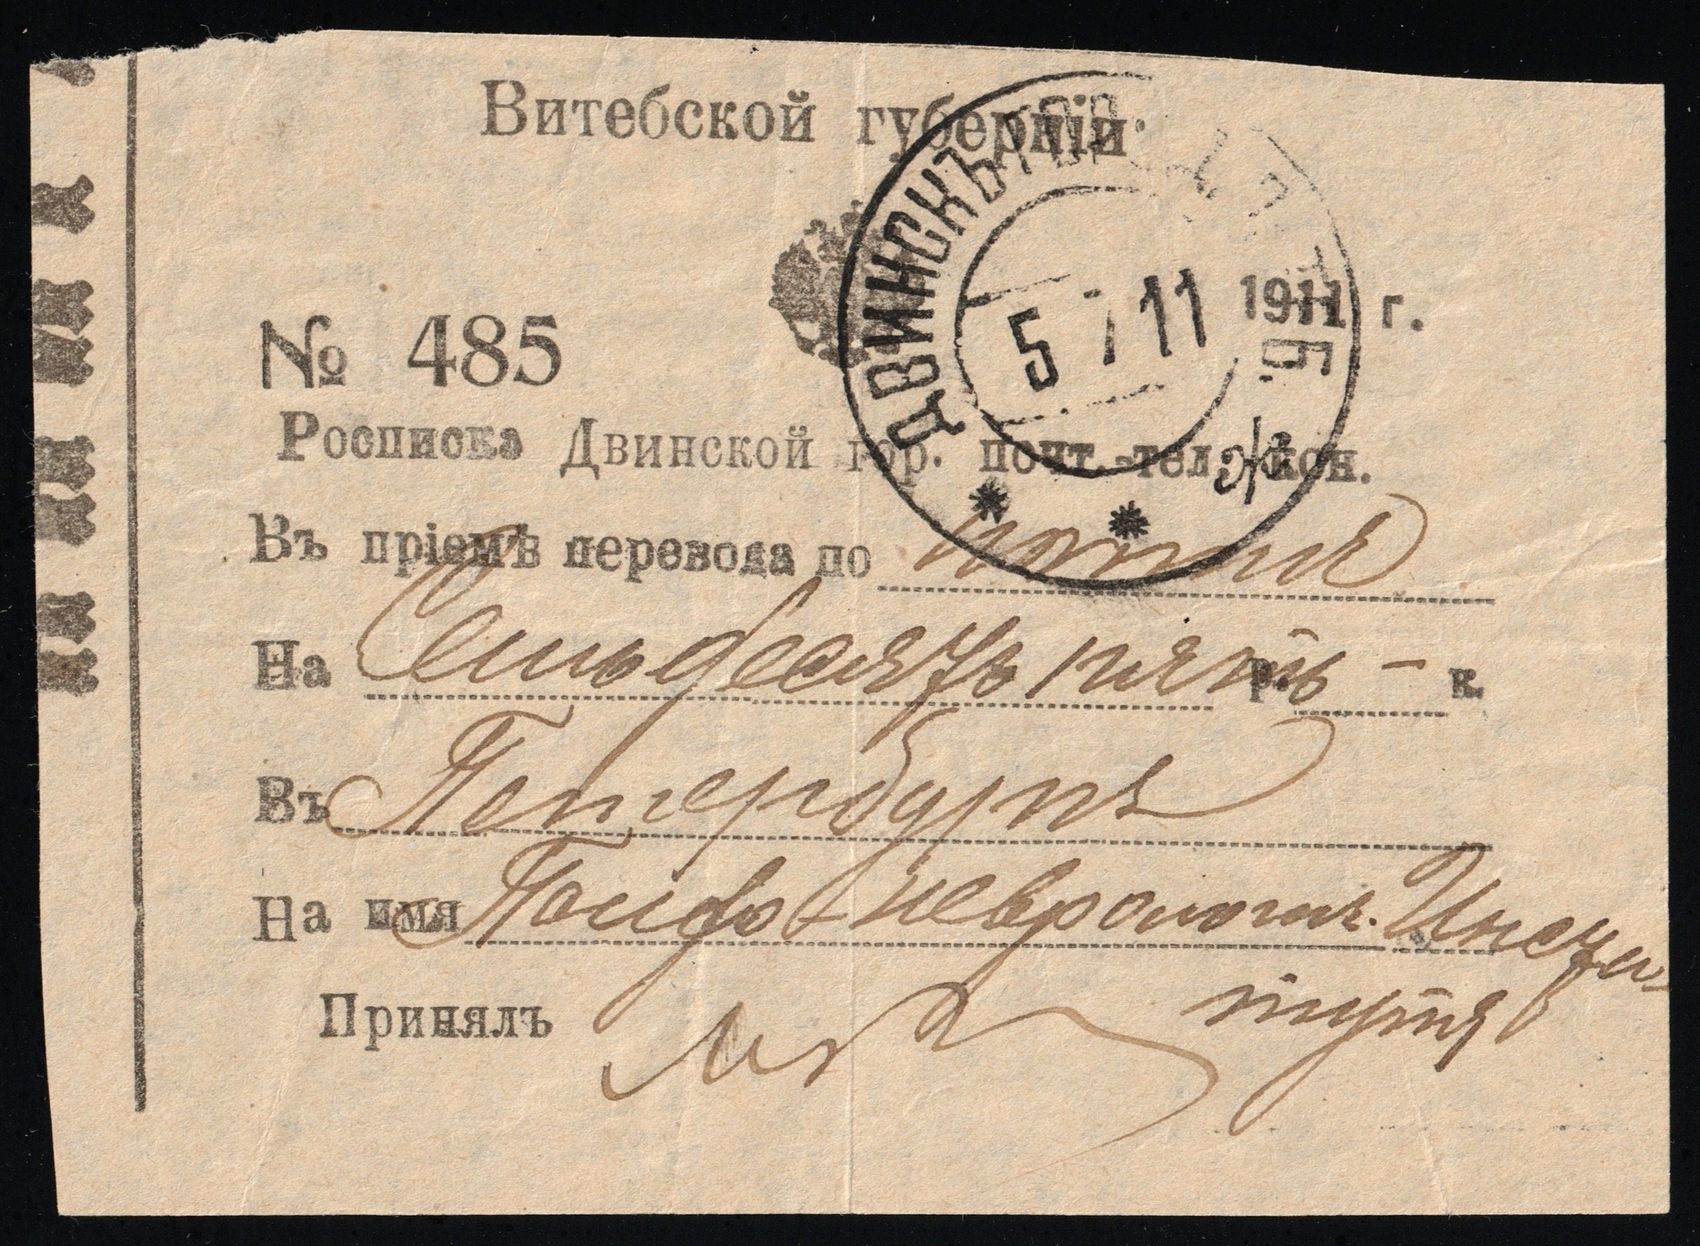 Витебской губерніи.
ДВИНСКЪ
5 7 11
1911 г.
№ 485
Росписка Двинской гор. почт.-тел. кон.
Въ пріемѣ перевода по почтѣ
На Семьдесятъ пять р. – к.
Въ Петербургъ
На имя Психо-неврологич. Инсти-
тута
Принялъ